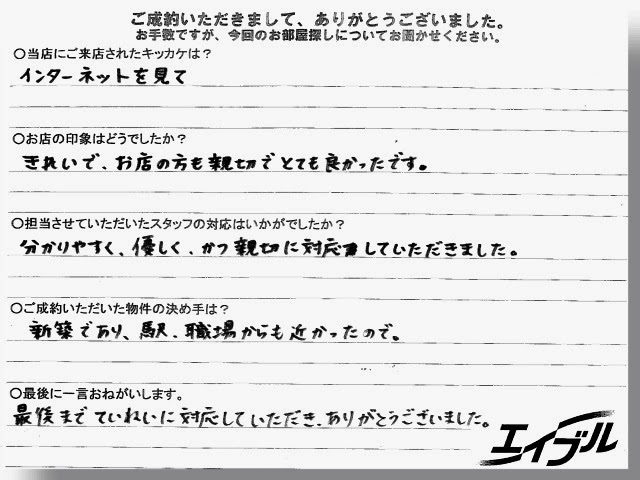 ご成約いただきまして、ありがとうございました。
お手数ですが、今回のお部屋探しについてお聞かせください。
○当店にご来店されたキッカケは？
インターネットを見て
○お店の印象はどうでしたか？
きれいで、お店の方も親切でとても良かったです。
○担当させていただいたスタッフの対応はいかがでしたか？
分かりやすく、優しく、かつ親切に対応していただきました。
○ご成約いただいた物件の決め手は？
新築であり、駅、職場からも近かったので。
○最後に一言おねがいします。
最後までていねいに対応していただき、ありがとうございました。
エイブル